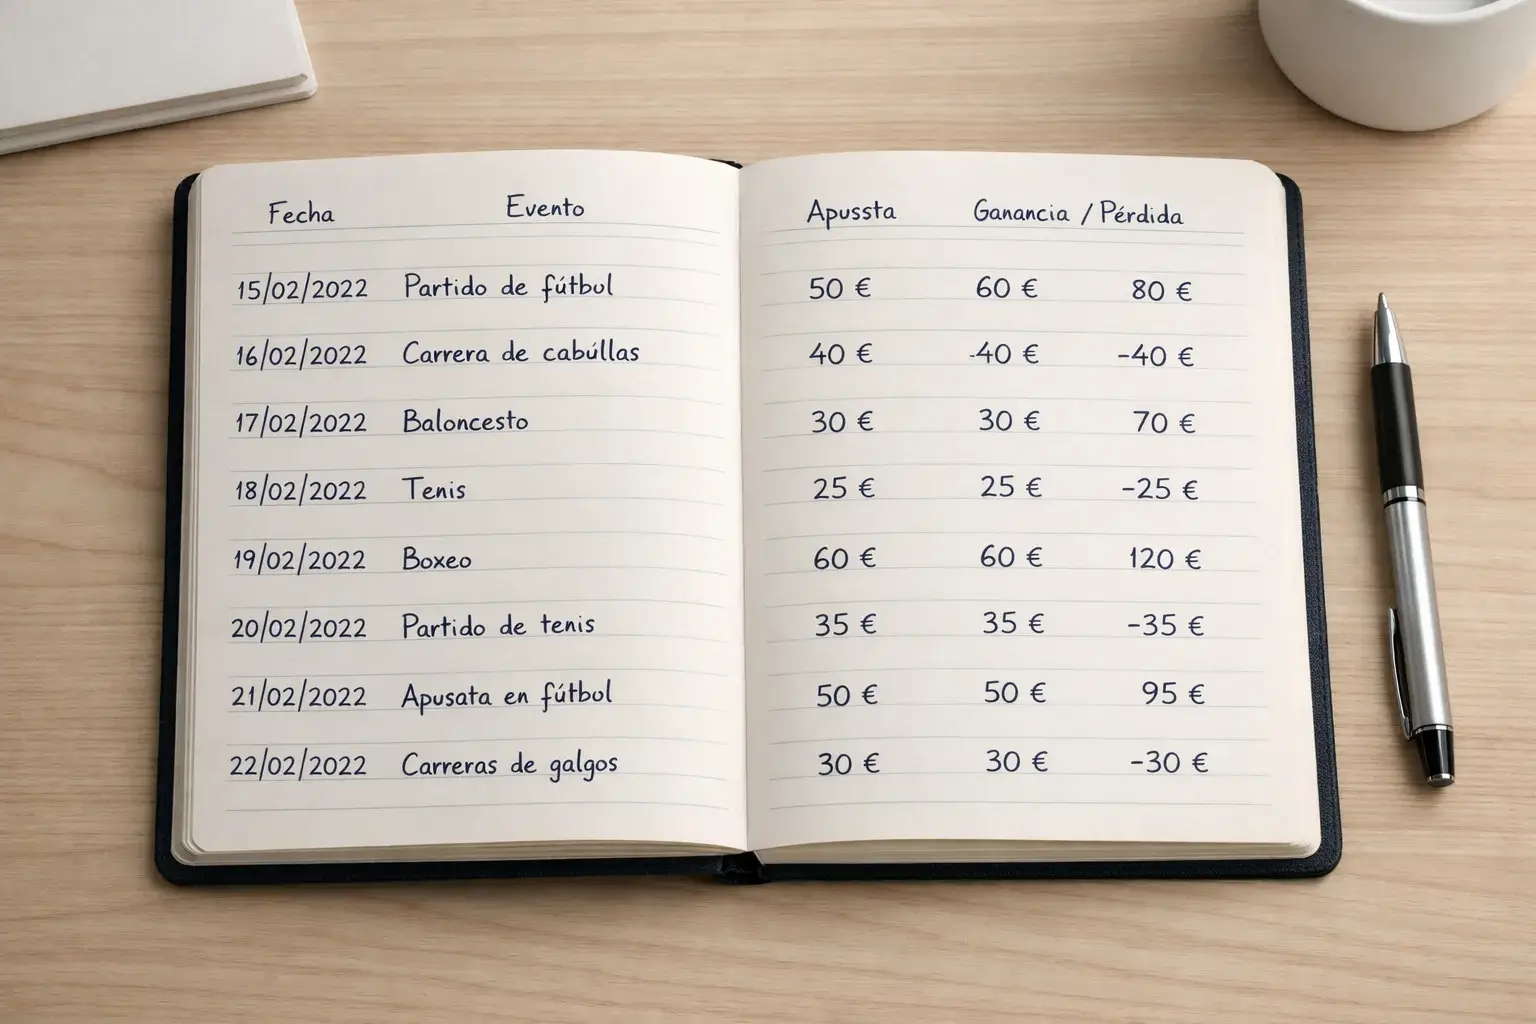 Fecha Evento Apussta Ganancia / Pérdida
15/02/2022 Partido de fútbol 50 € 60 € 80 €
16/02/2022 Carrera de cabúllas 40 € -40 € -40 €
17/02/2022 Baloncesto 30 € 30 € 70 €
18/02/2022 Tenis 25 € 25 € -25 €
19/02/2022 Boxeo 60 € 60 € 120 €
20/02/2022 Partido de tenis 35 € 35 € -35 €
21/02/2022 Apusata en fútbol 50 € 50 € 95 €
22/02/2022 Carreras de galgos 30 € 30 € -30 €